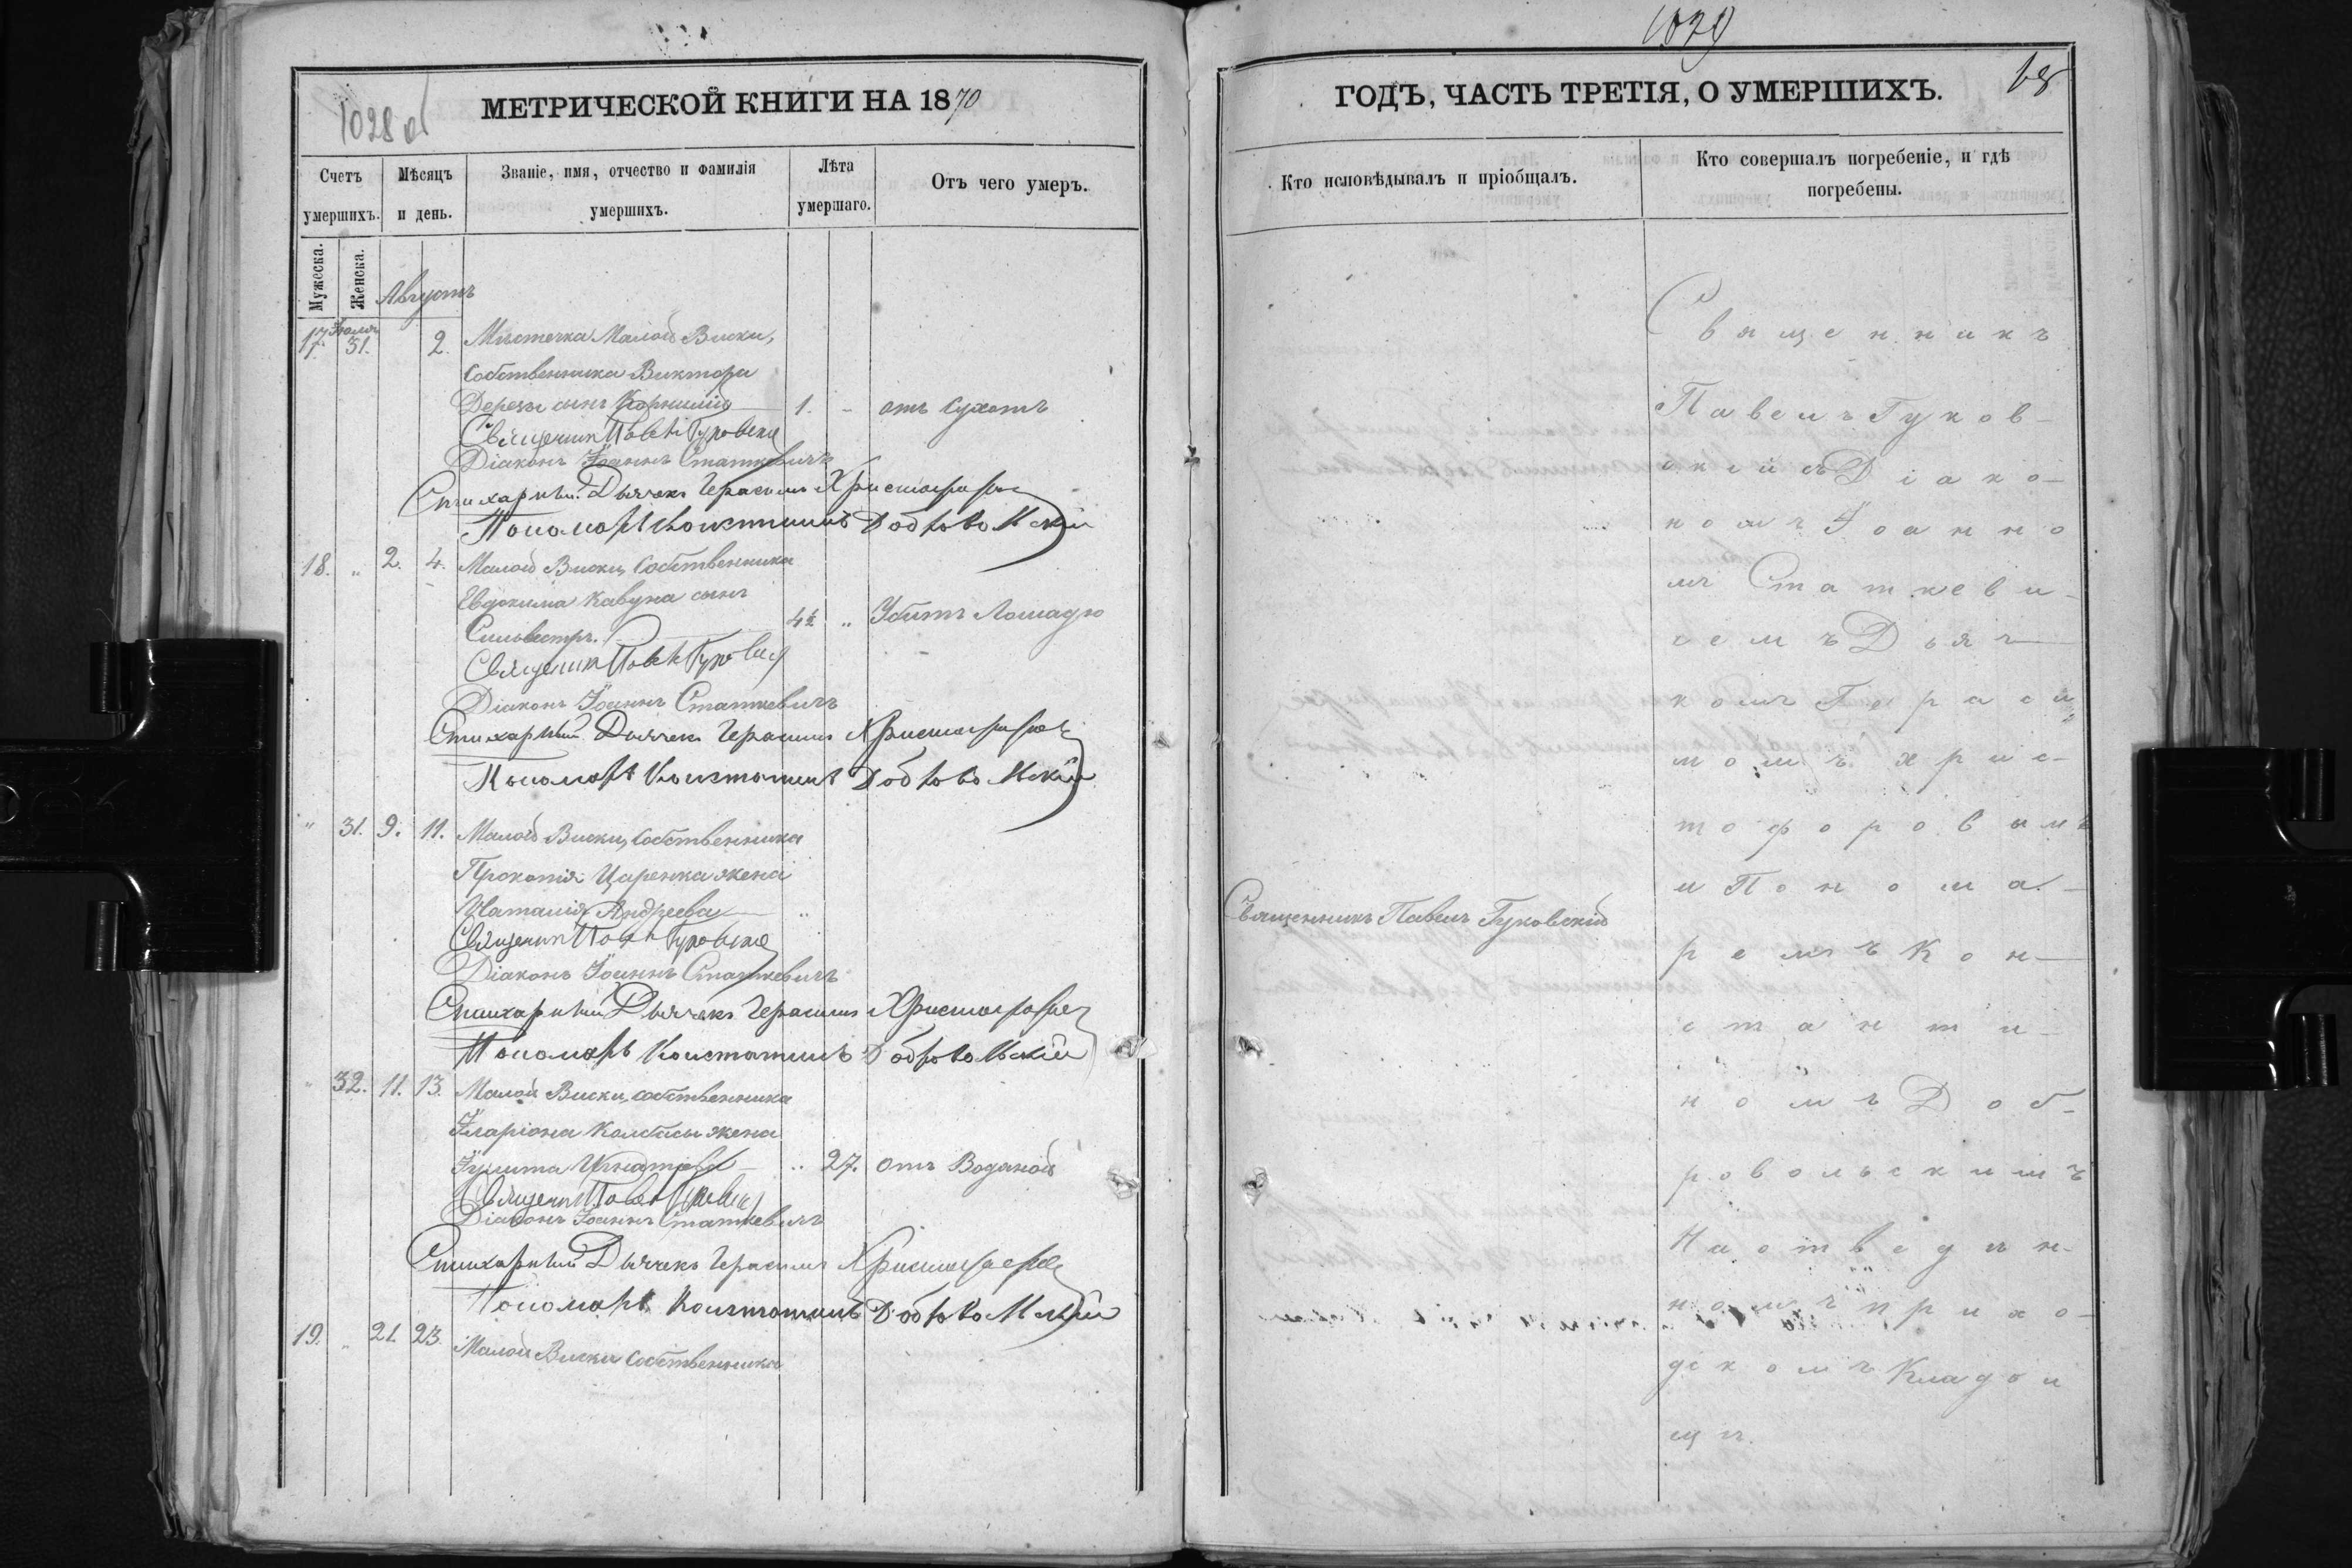 1028 об
МЕТРИЧЕСКОЙ КНИГИ НА 1870
Счетъ умершихъ.
Мѣсяцъ и день.
Званіе, имя, отчество и фамилія умершихъ.
Лѣта умершаго.
Отъ чего умеръ.
Мужеска.
Женска.
Августъ
17. Іюля 31. 2. Мѣстечка Малой Виски,
собственника Виктора
сынъ Корнилій 1. - отъ сухотъ
Священникъ Павелъ Гуковскій
Діаконъ Іоаннъ Статкевичъ
Стихарный Дьячекъ Герасимъ Христофоровъ
Пономарь Константинъ Добровольскій
18. " 2. 4. Малой Виски, собственника
Евдокима Кавуна сынъ
Сильвестръ. 4½ " Убитъ Лошадью
Священникъ Павелъ Гуковскій
Діаконъ Іоаннъ Статкевичъ
Стихарный Дьячекъ Герасимъ Христофоровъ
Пономарь Константинъ Добровольскій
" 31. 9. 11. Малой Виски, собственника
Прокопія Царенка жена
Наталія Андреева "
Священникъ Павелъ Гуковскій
Діаконъ Іоаннъ Статкевичъ
Стихарный Дьячекъ Герасимъ Христофоровъ
Пономарь Константинъ Добровольскій
" 32. 11. 13. Малой Виски, собственника
Іларіона Колбасы жена
Іулита Игнатьева " 27. отъ Водяной
Священникъ Павелъ Гуковскій
Діаконъ Іоаннъ Статкевичъ
Стихарный Дьячекъ Герасимъ Христофоровъ
Пономарь Константинъ Добровольскій
19. " 21. 23. Малой Виски собственника
1029
68
ГОДЪ, ЧАСТЬ ТРЕТІЯ, О УМЕРШИХЪ.
Кто исповѣдывалъ и пріобщалъ.
Кто совершалъ погребеніе, и гдѣ погребены.
Священникъ Павелъ Гуковскій
Священникъ
Павелъ Гуков-
скій съ Діако-
номъ Іоанно
мъ Статкеви-
чемъ Дьяч-
комъ Гераси
момъ Хрис-
тофоровымъ
и Понома-
ремъ Кон-
станти-
номъ Доб-
ровольскимъ
На отведен-
номъ прихо-
дскомъ Кладби
щѣ.